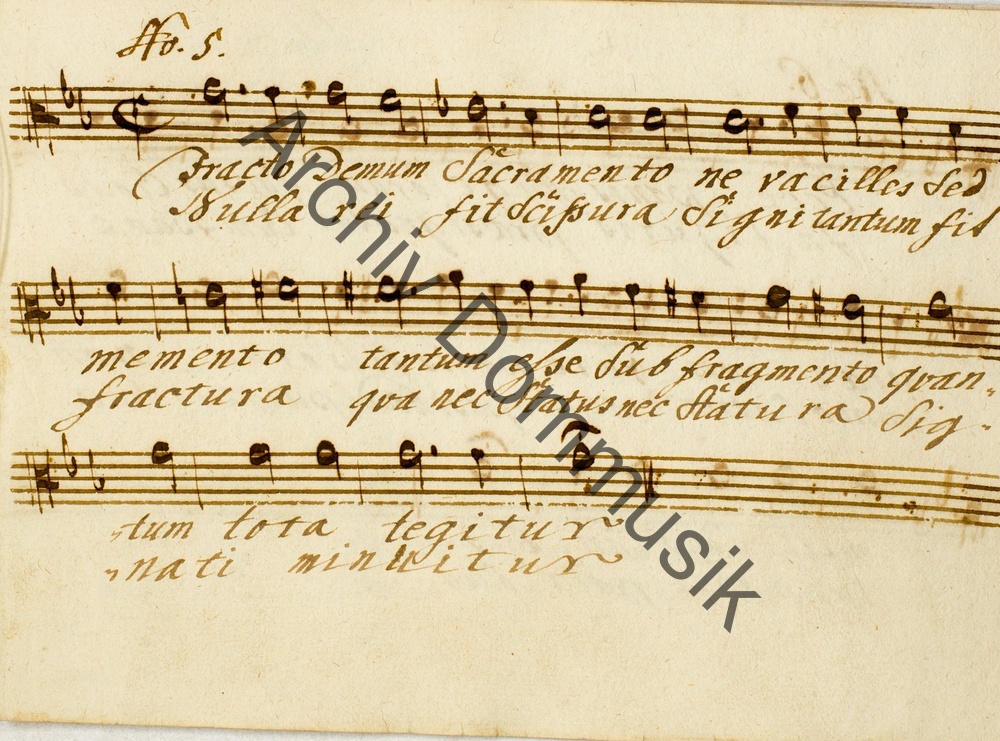 No. 5.
Fracto Demum Sacramento ne vacilles sed
Nulla rei fit scißura Signi tantum fit
memento tantum esse sub fragmento quan-
fractura qua nec Status nec statura Sig-
-tum tota tegitur
-nati minuitur
Archiv Dommusik